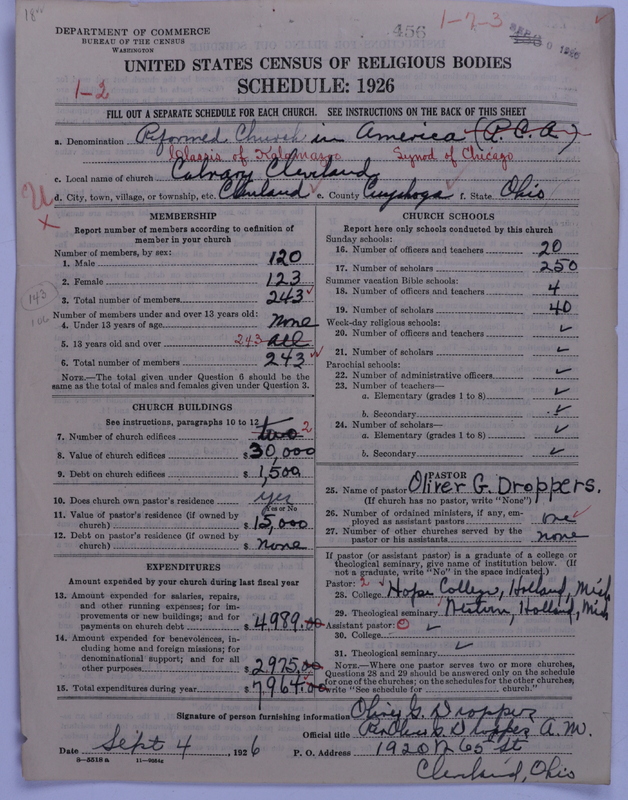 18
456
1-7-3
DEPARTMENT OF COMMERCE
BUREAU OF THE CENSUS
WASHINGTON
UNITED STATES CENSUS OF RELIGIOUS BODIES
SCHEDULE: 1926
1-2
FILL OUT A SEPARATE SCHEDULE FOR EACH CHURCH. SEE INSTRUCTIONS ON THE BACK OF THIS SHEET
a. Denomination Reformed Church in America (R.C.A.)
Classis of Kalamazoo Synod of Chicago
c. Local name of church Calvary Cleveland
d. City, town, village, or township, etc. Cleveland e. County Cuyahoga f. State Ohio
U
x
MEMBERSHIP
Report number of members according to definition of
member in your church
Number of members, by sex:
1. Male 120
2. Female 123
3. Total number of members 243
143
106
Number of members under and over 13 years old:
4. Under 13 years of age None
5. 13 years old and over 243 all
6. Total number of members 243
NOTE.—The total given under Question 6 should be the
same as the total of males and females given under Question 3.
CHURCH BUILDINGS
See instructions, paragraphs 10 to 12
7. Number of church edifices two 2
8. Value of church edifices $ 30,000
9. Debt on church edifices $ 1,500
10. Does church own pastor's residence yes
Yes or No
11. Value of pastor's residence (if owned by
church) $ 15,000
12. Debt on pastor's residence (if owned by
church) $ none
EXPENDITURES
Amount expended by your church during last fiscal year
13. Amount expended for salaries, repairs,
and other running expenses; for im-
provements or new buildings; and for
payments on church debt $ 4989.00
14. Amount expended for benevolences, in-
cluding home and foreign missions; for
denominational support; and for all
other purposes $ 2975.00
15. Total expenditures during year $ 7,964.00
CHURCH SCHOOLS
Report here only schools conducted by this church
Sunday schools:
16. Number of officers and teachers 20
17. Number of scholars 250
Summer vacation Bible schools:
18. Number of officers and teachers 4
19. Number of scholars 40
Week-day religious schools:
20. Number of officers and teachers ✓
21. Number of scholars ✓
Parochial schools:
22. Number of administrative officers ✓
23. Number of teachers—
a. Elementary (grades 1 to 8) ✓
b. Secondary ✓
24. Number of scholars—
a. Elementary (grades 1 to 8) ✓
b. Secondary ✓
PASTOR
25. Name of pastor Oliver G. Droppers.
(If church has no pastor, write "None")
26. Number of ordained ministers, if any, em-
ployed as assistant pastors one
27. Number of other churches served by the
pastor or his assistants none
If pastor (or assistant pastor) is a graduate of a college or
theological seminary, give name of institution below. (If
not a graduate, write "No" in the space indicated.)
Pastor: 2
28. College Hope College, Holland, Mich
29. Theological seminary Western, Holland, Mich
Assistant pastor: ✓
30. College
31. Theological seminary ✓
NOTE.—Where one pastor serves two or more churches,
Questions 28 and 29 should be answered only on the schedule
for one of the churches; on the schedules for the other churches,
write "See schedule for church."
Signature of person furnishing information Oliver G. Droppers
Official title Rev. Oliver G. Droppers A.M.
Date Sept 4, 1926 P. O. Address 1920 W 65 St
8—5518a 11—9054a
Cleveland, Ohio